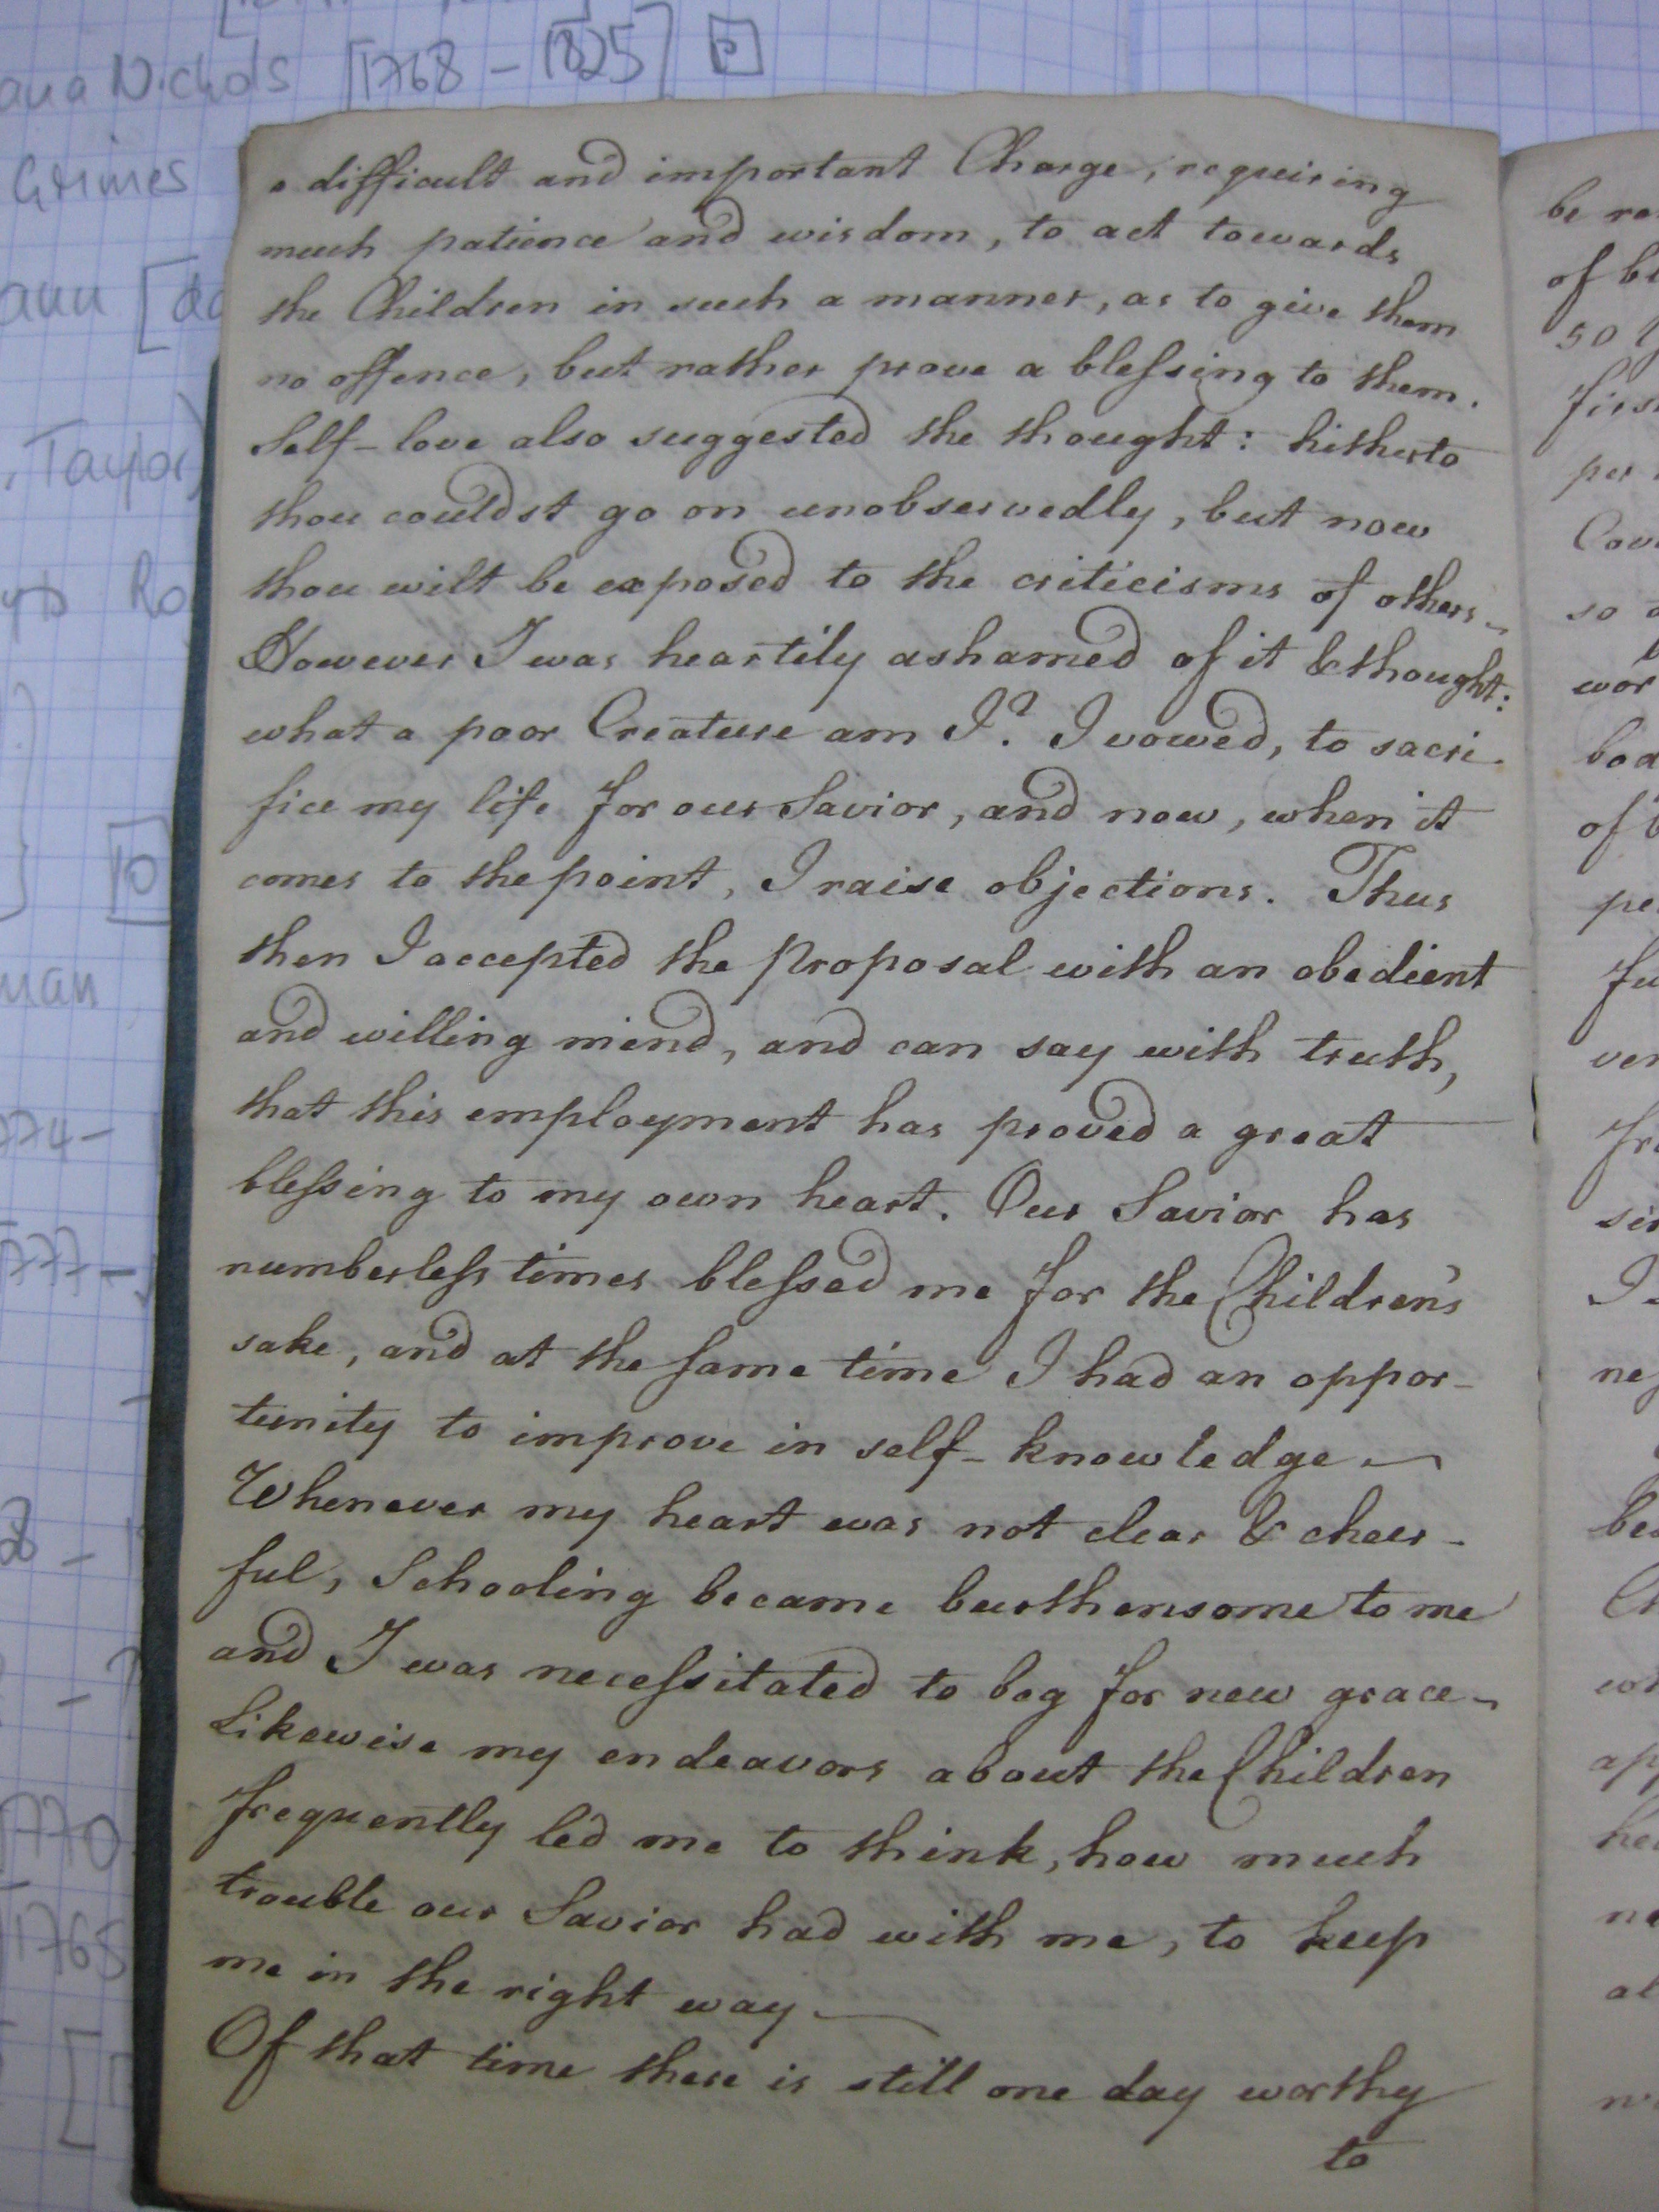 Nichols [1768 – 1825] P
Grimes
a difficult and important Charge, requiring
much patience and wisdom, to act towards
the Children in such a manner, as to give them
no offence, but rather prove a bleſsing to them.
Self-love also suggested the thought: hitherto
thou couldst go on unobservedly, but now
thou wilt be exposed to the criticisms of others –
However I was heartily ashamed of it & thought:
what a poor Creature am I? I vowed, to sacri-
fice my life for our Savior, and now, when it
comes to the point, I raise objections. Thus
then I accepted the Proposal with an obedient
and willing mind, and can say with truth,
that this employment has proved a great
bleſsing to my own heart. Our Savior has
numberleſs times bleſsed me for the Children's
sake, and at the same time I had an oppor-
tunity to improve in self-knowledge –
Whenever my heart was not clear & cheer-
ful, Schooling became burthensome to me
and I was neceſsitated to beg for new grace –
Likewise my endeavors about the Children
frequently led me to think, how much
trouble our Savior had with me, to keep
me in the right way –
Of that time there is still one day worthy
to
Taylor)
10
man
774 –
1777 –
1770
1765
be
of
50
first
per
so
wor
of